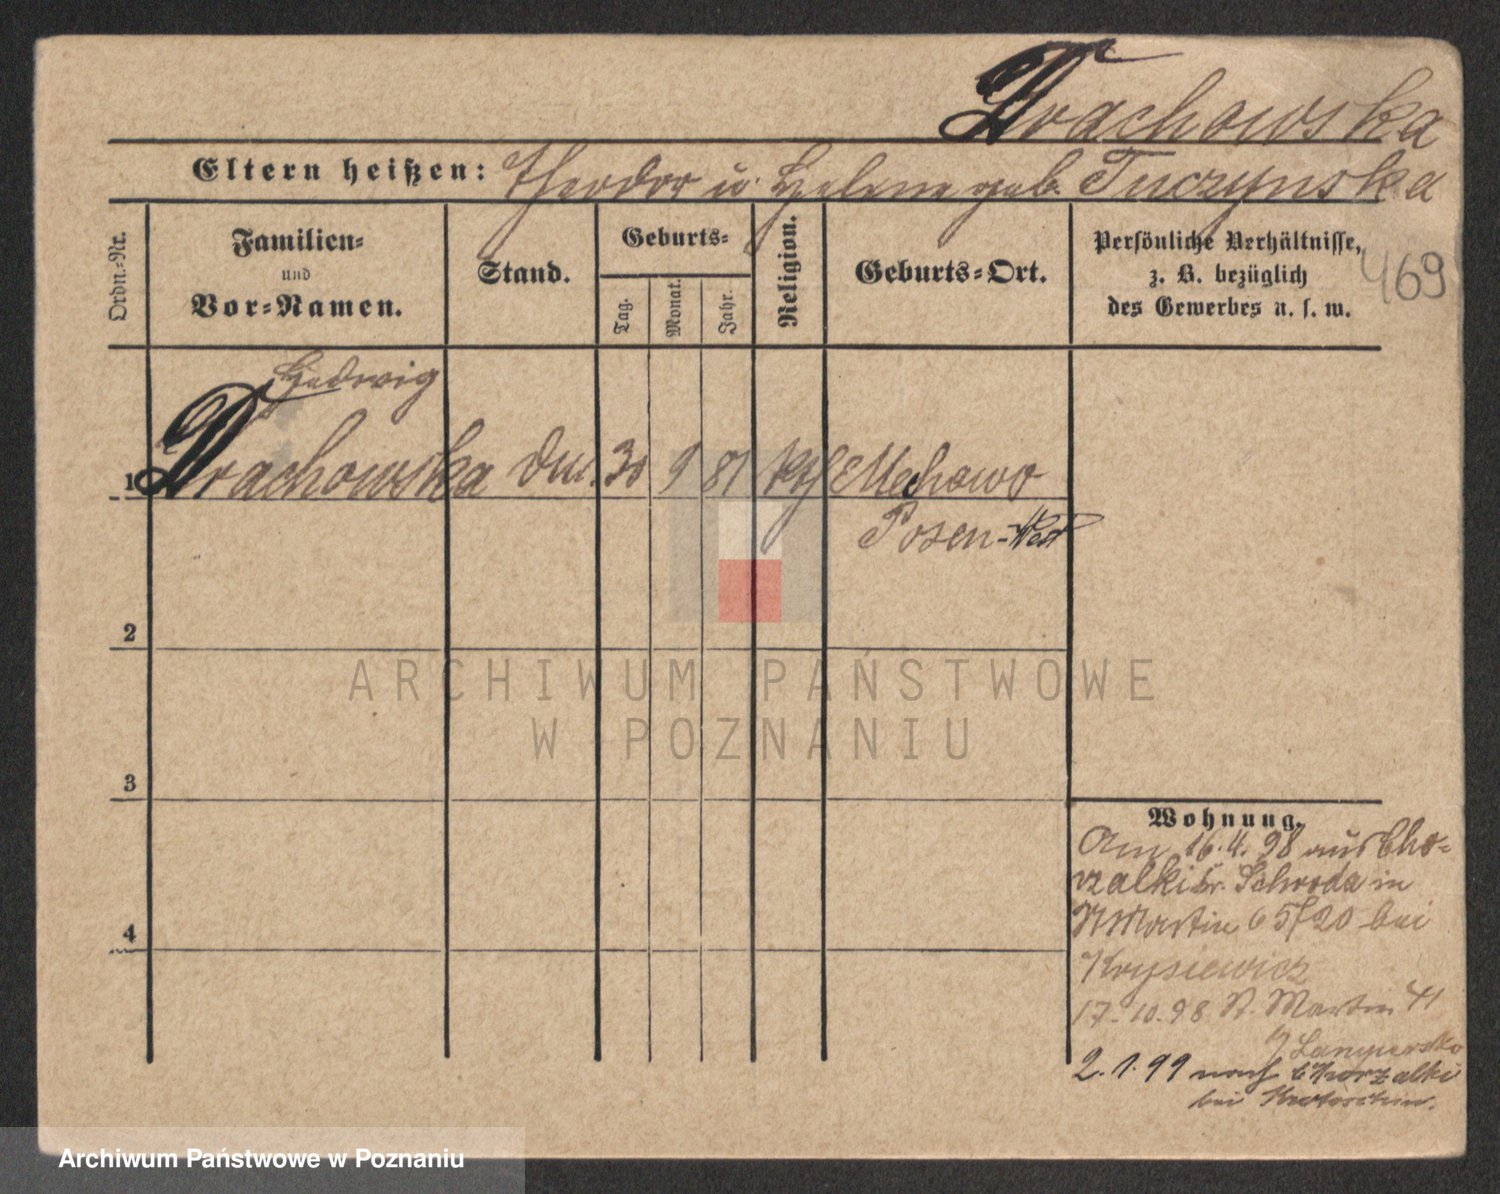 Drachowska
Eltern heißen: Theodor u. Helene geb. Tuczynska
Ordn.-Nr.
Familien-
und
Vor-Namen.
Stand.
Geburts-
Tag.
Monat.
Jahr.
Religion.
Geburts-Ort.
Persönliche Verhältnisse,
z. B. bezüglich
des Gewerbes u. s. w.
469
Hedwig
1 Drachowska 30 9 81 kth Mechowo
Posen-West
2
ARCHIWUM PAŃSTWOWE
W POZNANIU
3
4
Wohnung.
Am 16.4.98 aus Cho-
rzalki Kr. Schroda in
St Martin 65/20 bei
Krysiewicz
17.10.98 St. Martin 41
2.1.99 nach Chorzalki
bei
Archiwum Państwowe w Poznaniu